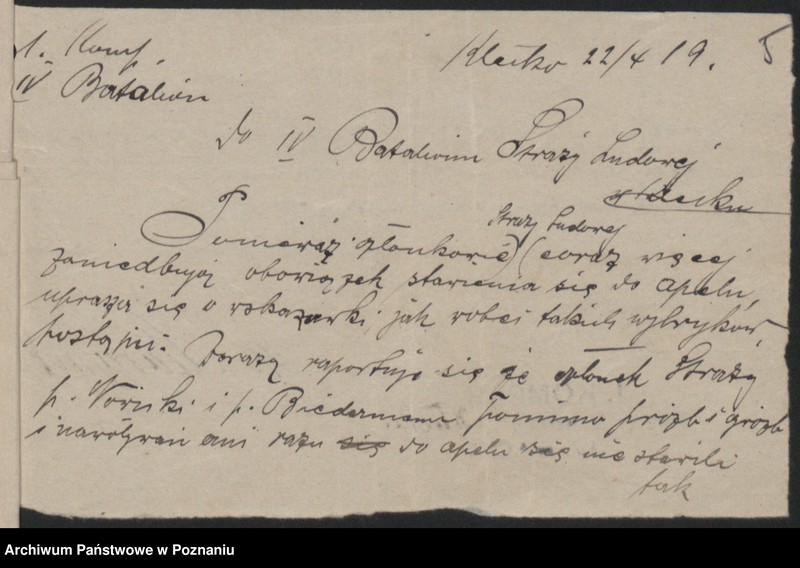 1. Komp. Klecko 22/4 19. 5
IV Batalion
do IV Batalionu Straży Ludowej
w Klecku
Straży Ludowej
Ponieważ członkowie coraz więcej
zaniedbują obowiązek stawienia się do apelu,
uprasza się o wskazówki, jak wobec takich wybryków
postąpić. Zarazem raportuje się że członek Straży
p. Nowicki i p. Biederman pommo próźb i gróźb
i nawoływań ani razu się do apelu się nie stawili
tak
Archiwum Państwowe w Poznaniu